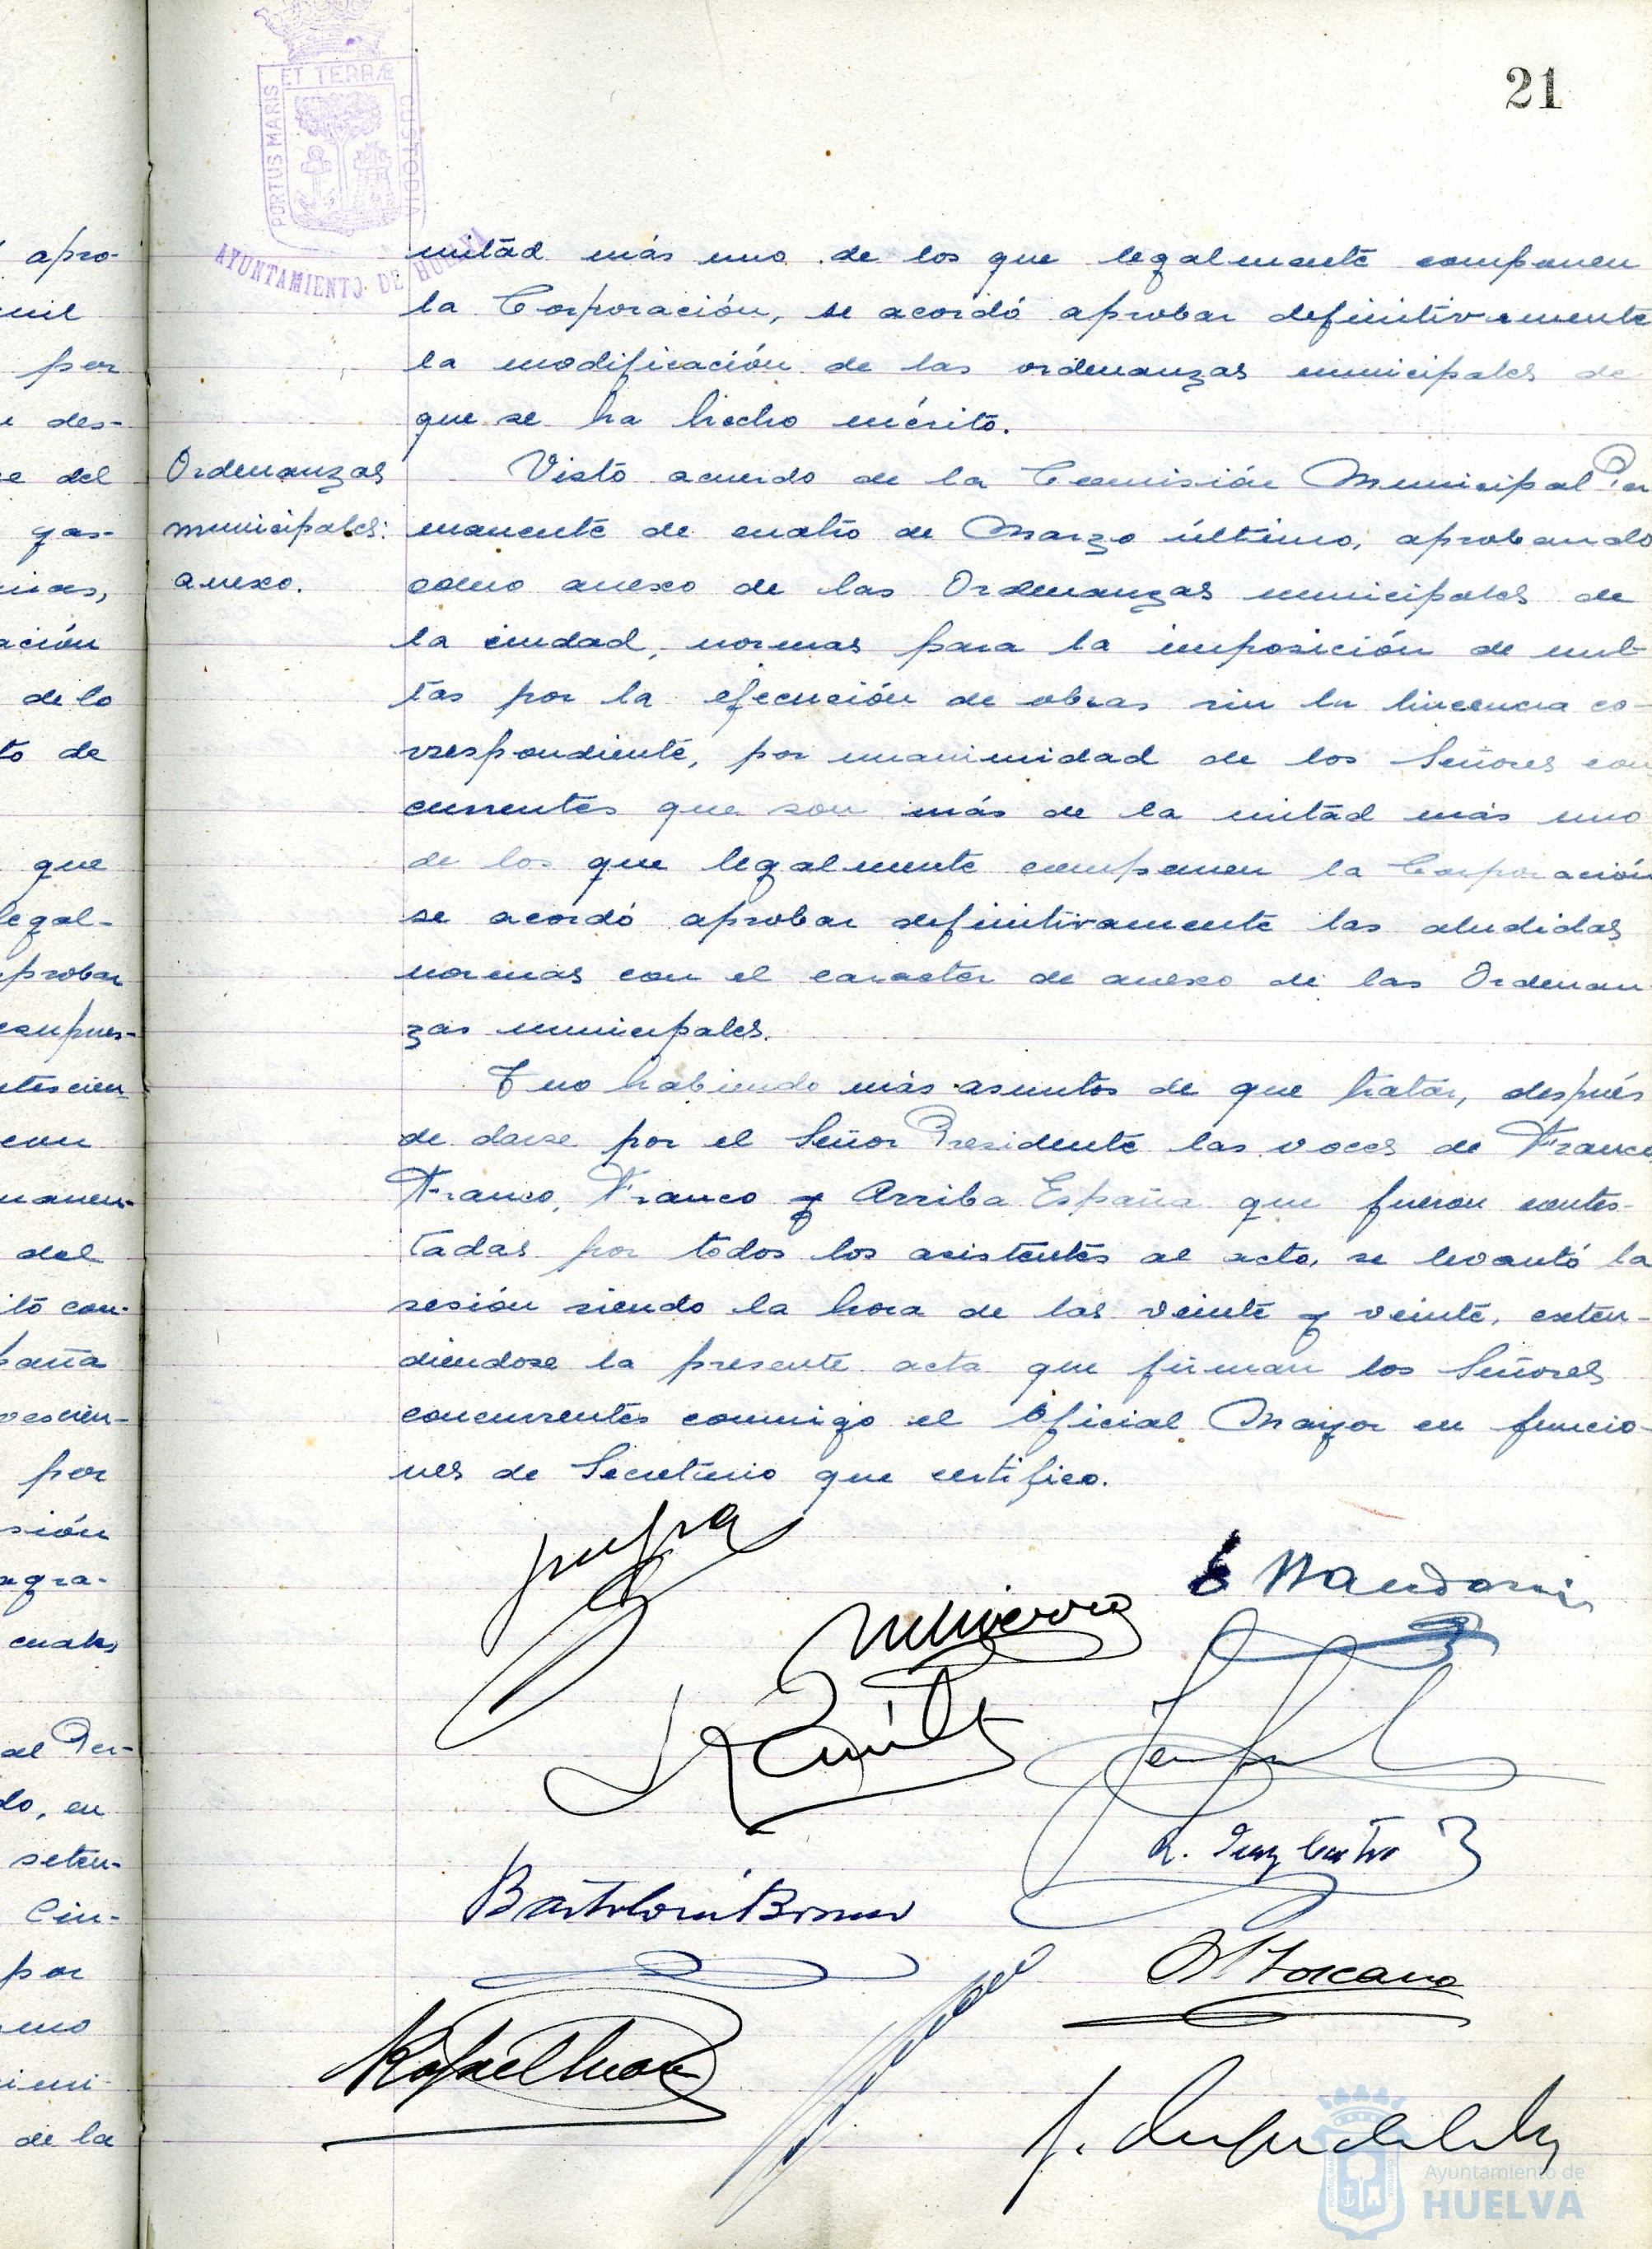 21
PORTUS MARIS ET TERRÆ CUSTODIA
AYUNTAMIENTO DE HUELVA
mitad más uno de los que legalmente componen
la Corporación, se acordó aprobar definitivamente
la modificación de las ordenanzas municipales de
que se ha hecho mérito.
Ordenanzas
municipales:
anexo.
Visto acuerdo de la Comisión Municipal Per
manente de cuatro de Marzo último, aprobando
como anexo de las Ordenanzas municipales de
la ciudad, normas para la imposición de mul-
tas por la ejecución de obras sin la lincencia co-
rrespondiente, por unanimidad de los Señores con
currentes que son más de la mitad más uno
de los que legalmente componen la Corporación
se acordó aprobar definitivamente las aludidas
normas con el caracter de anexo de las Ordenan
zas municipales.
Y no habiendo más asuntos de que tratar, después
de darse por el Señor Presidente las voces de Franco
Franco, Franco y Arriba España que fueron contes-
tadas por todos los asistentes al acto, se levantó la
sesión siendo la hora de las veinte y veinte, exten-
diendose la presente acta que firman los Señores
concurrentes conmigo el Oficial Mayor en funcio-
nes de Secretario que certifico.
apro-
mil
por
des-
del
gas-
ación
de lo
to de
que
legal-
probar
con
del
por
sión
al Per-
do, en
seten-
Cin-
por
de la
Toscano
Rafael
Ayuntamiento de
HUELVA